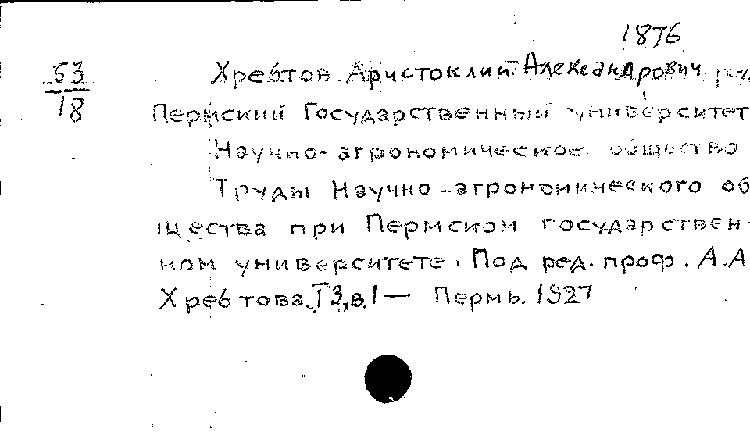 1876
53
18
Хребтов Аристоклий Александрович ред
Пермский Государственный университет
Научно-агрономическое общество
Труды Научно-агрономического об
щества при Пермском государствен-
ном университете. Под ред. проф. А.А
Хребтова. Т3, в.1 — Пермь. 1927